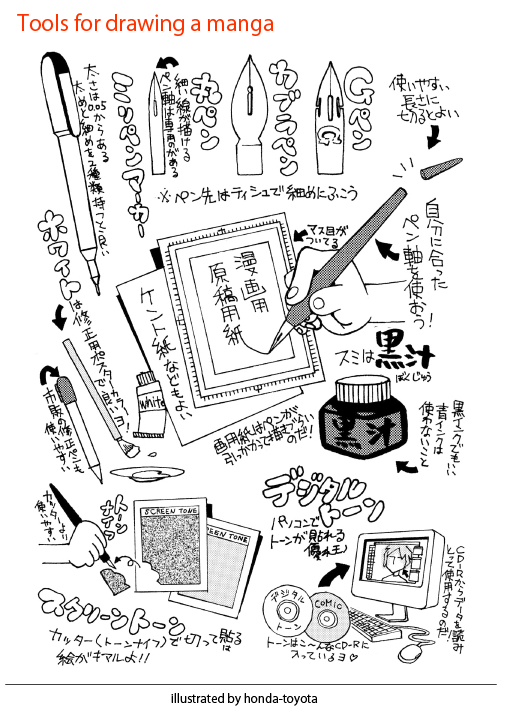 Tools for drawing a manga
ミリペンマーカー
太さは0.05からある
太めと細めを2種類持つと良い
丸ペン
細い線が描ける
ペン軸は専用のがある
カブラペン
Gペン
使いやすい
長さに
切るとよい
※ペン先はティシュで細めにふこう
自分に合った
ペン軸を使おう!
マス目が
ついてる
漫画用
原稿用紙
ケント紙などもよい
ホワイトは修正用ポスターカラーで良いヨ!
White
市販の修正ペンも
使いやすい
画用紙はペンが
引っかかって描きづらい
のだ!
スミは黒汁
ぼくじゅう
黒汁
黒インクでもいい
青インクは
使わないこと
トーンナイフ
カッターより
使いやすい
SCREEN TONE
SCREEN TONE
スクリーントーン
カッター(トーンナイフ)で切って貼る
は
絵がキマルよ!!
デジタル
トーン
パソコンで
トーンが貼れる
優れ王
デジタル
トーン
COMIC
トーンはこ〜んなCD-Rに
入っているヨ♡
CD-Rからデータを読み
とって使用するのだ!
illustrated by honda-toyota